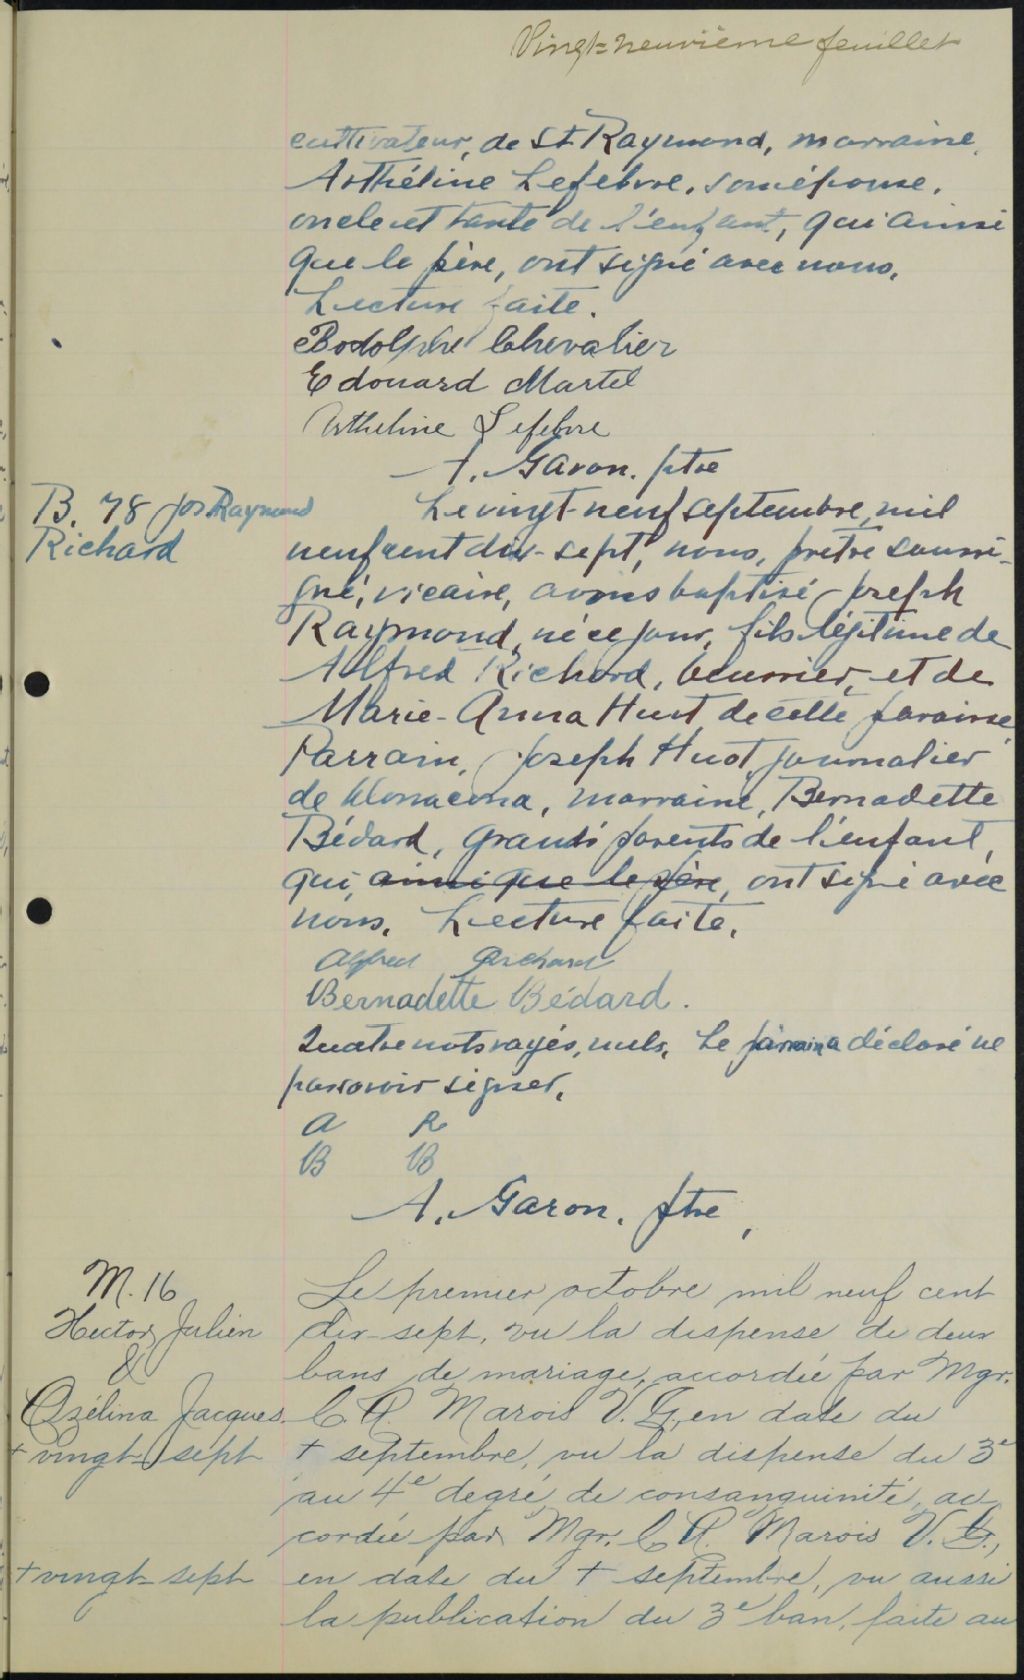 Vingt-neuvième feuillet
cultivateur, de St Raymond, marraine,
Arthéline Lefebvre, son épouse,
oncle et tante de l'enfant, qui ainsi
que le père, ont signé avec nous.
Lecture faite.
Rodolphe Chevalier
Edouard Martel
Artheline Lefebvre
A. Garon, ptre
B. 78 Jos Raymond
Richard
Le vingt-neuf septembre, mil
neuf cent dix-sept, nous, prêtre soussi-
gné, vicaire, avons baptisé Joseph
Raymond, né ce jour, fils légitime de
Alfred Richard, beurrier, et de
Marie-Anna Huot de cette paroisse.
Parrain, Joseph Huot, journalier
de Donacona, marraine, Bernadette
Bédard, grands parents de l'enfant,
qui, ainsi que le père, ont signé avec
nous. Lecture faite.
Alfred Richard
Bernadette Bédard.
Quatre mots rayés, nuls. Le parrain a déclaré ne
pas savoir signer.
A R
B B
A. Garon, ptre,
M. 16
Hector Julien
&
Ozélina Jacques
Le premier octobre mil neuf cent
dix-sept, vu la dispense de deux
bans de mariage, accordée par Mgr.
C. A. Marois V. G., en date du
+ vingt-sept
+ septembre, vu la dispense du 3e
au 4e degré de consanguinité, ac
cordée par Mgr. C. A. Marois V. G.,
+ vingt-sept
en date du + septembre, vu aussi
la publication du 3e ban, faite au